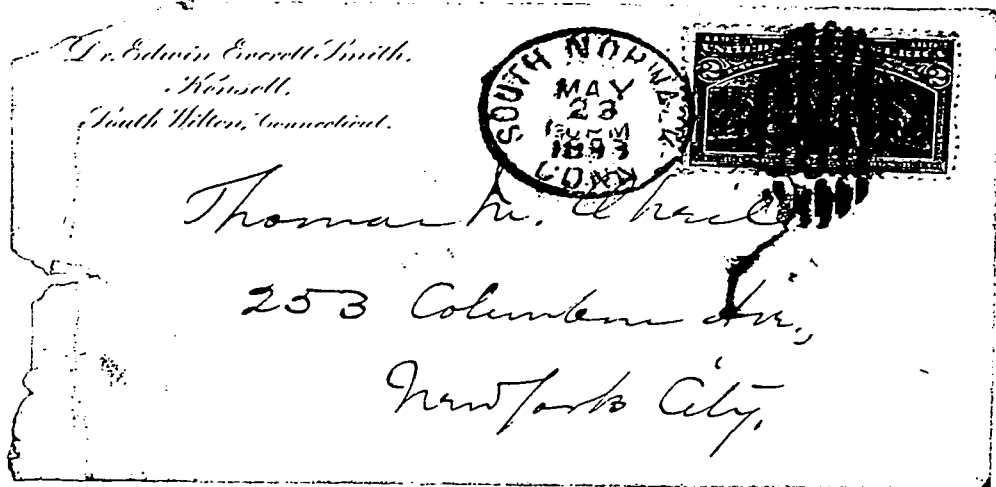 Dr. Edwin Everett Smith.
Kensett.
South Wilton, Connecticut.
SOUTH NORWALK CONN
MAY
23
1893
2 2
Thomas M.
253 Columbus Ave.,
New York City.